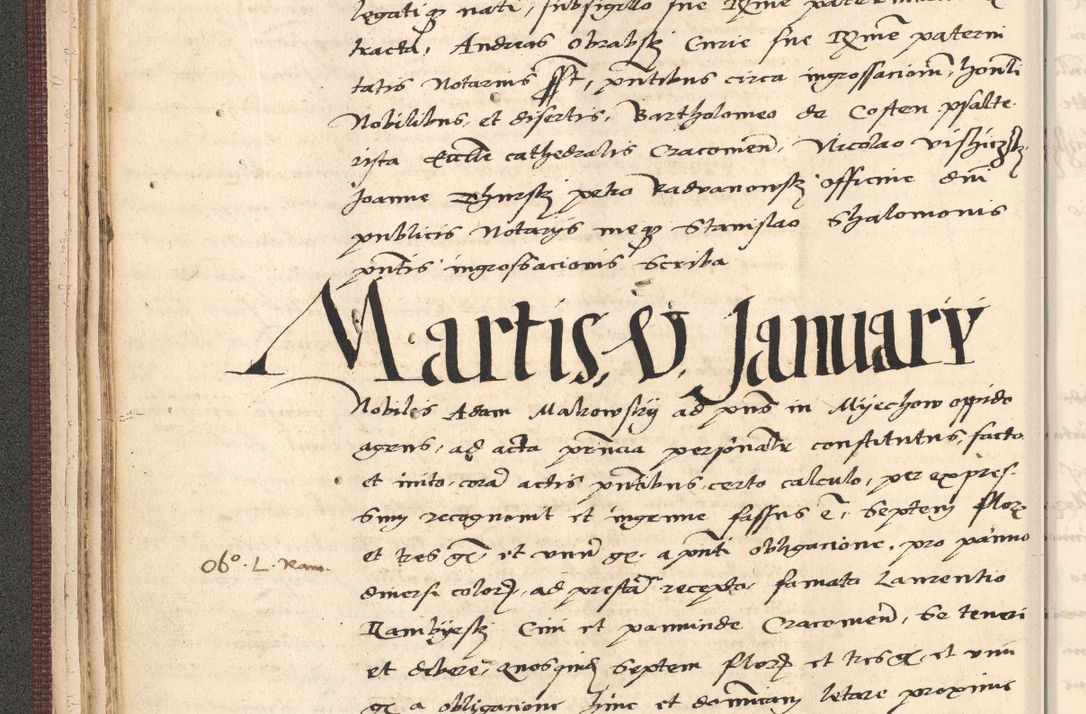 legatiq nati, subsigillo sue Rme
tracta, Andreas Obrabski Curie sue Rme paterni
tatis Notarius sst, pntibus circa ingrossacionem, honli
Nobilibus et disertis, Bartholomeo de Costen psalte
rista Eccle cathedralis Cracovien, Nicolao
Joanne petro Radvanowski officine dni
publicis Notarys meq Stanislao Shalomonis
pntis ingrossacionis scriba
Martis, V, January
Nobilis Adam Makowsky ad pns in Myechow oppido
agens, ad acta pncia personalr constitutus, facto
et inito, cora actis pntibus, certo calculo, per expres
sum recognovit et ingenue fassus e, septem flor
et tres gr, et unu gr, a pnti obligacione, pro panno
diversi color, ad presta recepto, famato Laurentio
Rambyeski Civi et pannide Cracovien, se teneri
et debere, quosquid septem flor et tres gr, et unu
gr a obligacione hinc et domicam letare proxime
06o. L. Ram.